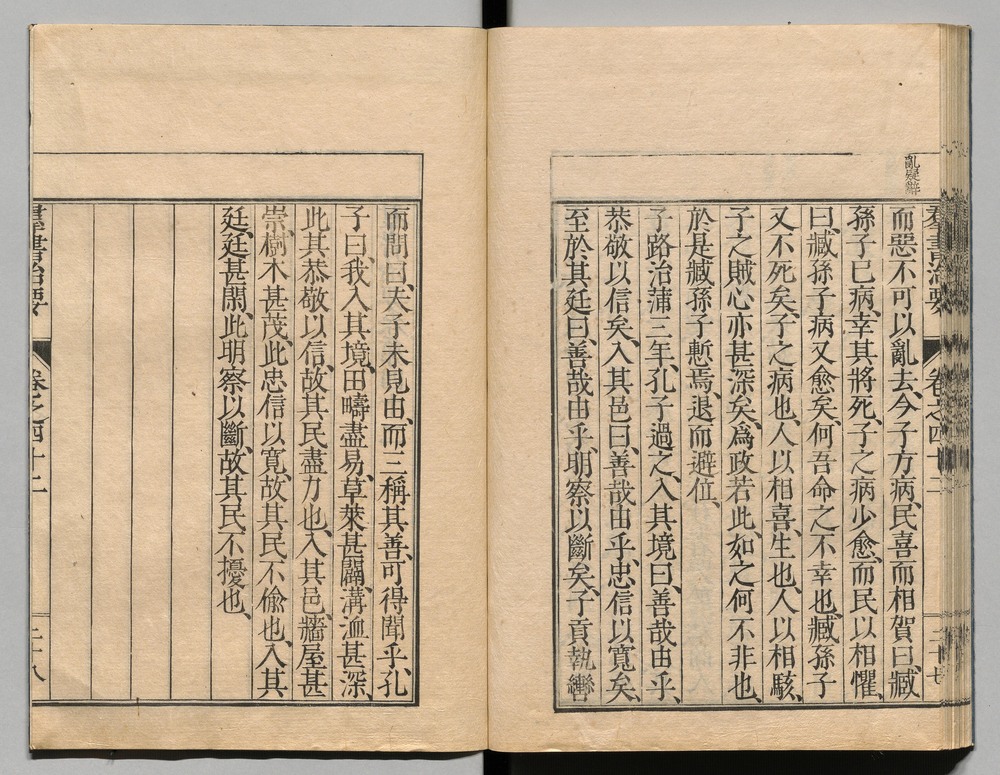 亂疑辭
群書治要 卷之四十二 二十七
而惡不可以亂去、今子方病、民喜而相賀曰、臧
孫子已病、幸其將死、子之病少愈、而民以相懼、
曰、臧孫子病又愈矣、何吾命之不幸也、臧孫子
又不死矣、子之病也、人以相喜、生也、人以相駭、
子之賊心亦甚深矣、爲政若此、如之何不非也、
於是臧孫子慙焉、退而避位、
子路治蒲三年、孔子過之、入其境曰、善哉由乎、
恭敬以信矣、入其邑曰、善哉由乎、忠信以寬矣、
至於其廷曰、善哉由乎、明察以斷矣、子貢執轡
而問曰、夫子未見由、而三稱其善、可得聞乎、孔
子曰、我入其境、田疇盡易、草萊甚闢、溝洫甚深、
此其恭敬以信、故其民盡力也、入其邑、牆屋甚
崇、樹木甚茂、此忠信以寬、故其民不偷也、入其
廷、廷甚閑、此明察以斷、故其民不擾也、
群書治要 卷之四十二 二十八